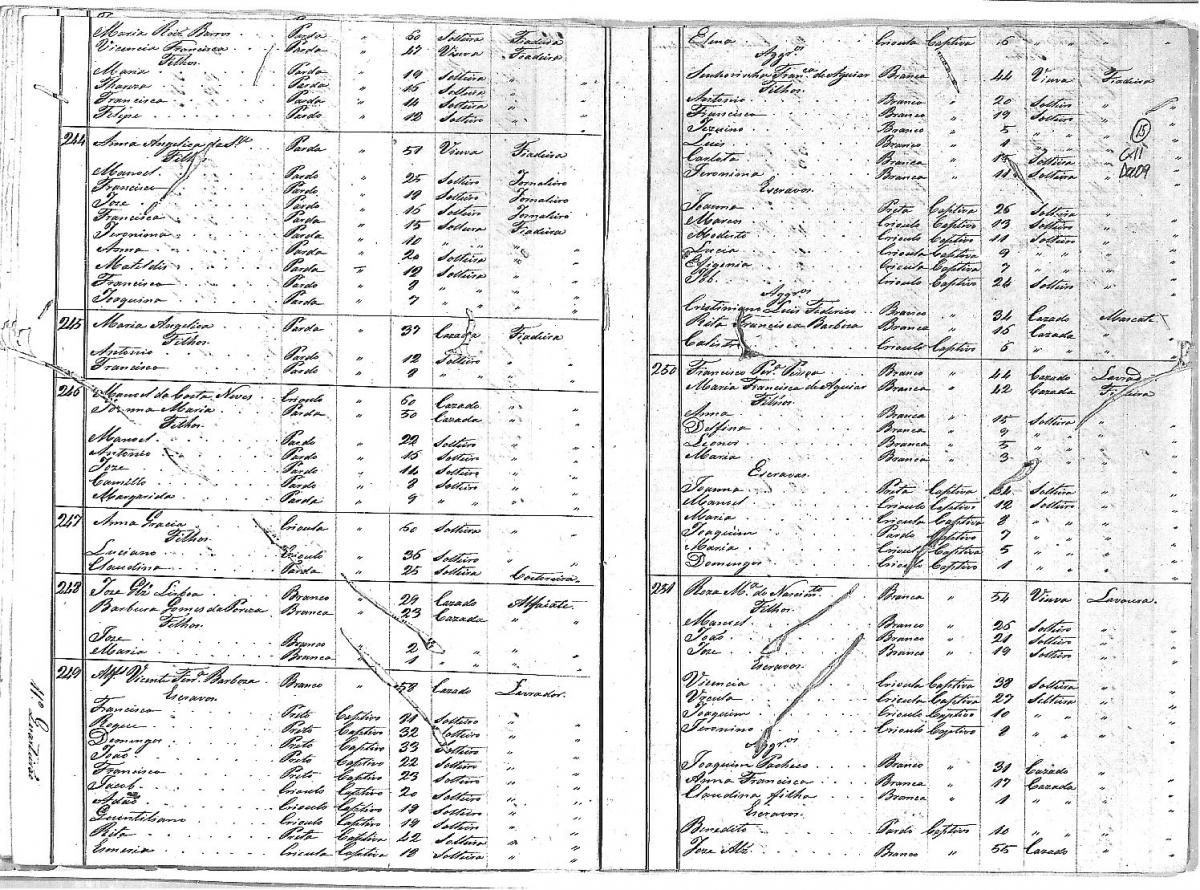 Maria Roiz Barros Parda " 60 Solteira Fiadeira
Vicencia Francisca Parda " 47 Viuva Fiadeira
Filhos
Maria Parda " 19 Solteira "
Thereza Parda " 16 Solteira "
Francisca Parda " 14 Solteira "
Felipe Pardo " 12 Solteiro "
244 Anna Angelica da Parda " 51 Viuva Fiadeira
Filhos
Manoel Pardo " 25 Solteiro Jornaleiro
Francisco Pardo " 19 Solteiro Jornaleiro
Joze Pardo " 16 Solteiro Jornaleiro
Francisca Parda " 15 Solteira Fiadeira
Jeronima Parda " 10 " "
Anna Parda " 20 Solteira "
Matildes Parda " 12 Solteira "
Francisca Parda " 9 " "
Joaquina Parda " 7 " "
245 Maria Angelica Parda " 37 Cazada Fiadeira
Filhos
Antonio Pardo " 12 Solteiro "
Francisco Pardo " 9 " "
246 Manoel da Costa Neves Crioulo " 60 Cazado "
Joanna Maria Parda " 50 Cazada "
Filhos
Manoel Pardo " 22 Solteiro "
Antonio Pardo " 15 Solteiro "
Joze Pardo " 14 Solteiro "
Camillo Pardo " 8 Solteiro "
Margarida Parda " 9 " "
247 Anna Gracia Crioula " 60 Solteira "
Filhos
Luciano Crioulo " 36 Solteiro "
Claudina Parda " 25 Solteira Costureira
248 Joze Glz Lisboa Branco " 29 Cazado Alfaiate
Barbara Gomes da Branca " 23 Cazada "
Filhos
Joze Branco " 2 " "
Maria Branca " 1 " "
249 Alfs Vicente Ferra Barboza Branco " 58 Cazado Lavrador
Escravos
Francisco Preto Captivo 21 Solteiro "
Roque Preto Captivo 32 Solteiro "
Domingos Preto Captivo 33 Solteiro "
João Preto Captivo 22 Solteiro "
Francisco Preto Captivo 23 Solteiro "
Jacob Crioulo Captivo 20 Solteiro "
Adão Crioulo Captivo 19 Solteiro "
Crioulo Captivo 19 Solteiro "
Rita Preta Captiva 42 Solteira "
Esmeria Crioula Captiva 18 Solteira "
Elena Crioula Captiva 16 " "
Aggros
Senhorinha Franca de Aguiar Branca " 44 Viuva Fiadeira
Filhos
Antonio Branco " 20 Solteiro "
Francisco Branco " 19 Solteiro "
Branco " 5 " "
Luis Branco " 1 " "
Carlota Branca " 13 Solteira "
Jeronima Branca " 11 Solteira "
15
CX11
Do09
Escravos
Joanna Preta Captiva 26 Solteira "
Marcos Crioulo Captivo 13 Solteiro "
Modesto Crioulo Captivo 11 Solteiro "
Lucia Crioula Captiva 9 " "
Efigenia Crioula Captiva 7 " "
Job Crioulo Captivo 24 Solteiro "
Aggros
Luis Federico Branco " 34 Cazado Mascate
Rita Francisca Barboza Branca " 16 Cazada "
Crioulo Captivo 6 " "
250 Francisco Branco " 44 Cazado Lavrador
Maria Francisca de Aguiar Branca " 42 Cazada Fiadeira
Filhos
Anna Branca " 15 Solteira "
Delfina Branca " 9 " "
Leonor Branca " 5 " "
Maria Branca " 3 " "
Escravos
Joanna Preta Captiva 34 Solteira "
Manoel Crioulo Captivo 12 Solteiro "
Maria Crioula Captiva 8 " "
Joaquim Pardo Captivo 7 " "
Maria Crioula Captiva 5 " "
Domingos Crioulo Captivo 1 " "
251 Roza Ma do Nascimto Branca " 54 Viuva Lavoura
Filhos
Manoel Branco " 26 Solteiro "
João Branco " 21 Solteiro "
Joze Branco " 19 Solteiro "
Escravos
Vicencia Crioula Captiva 38 Solteira "
Crioula Captiva 27 Solteira "
Joaquim Crioulo Captivo 10 " "
Jeronimo Crioulo Captivo 9 " "
Aggros
Joaquim Pacheco Branco " 31 Cazado "
Anna Francisca Branca " 17 Cazada "
Claudina filha Branca " 1 " "
Escravos
Benedito Pardo Captivo 10 " "
Joze Alz Branco " 55 Cazado "